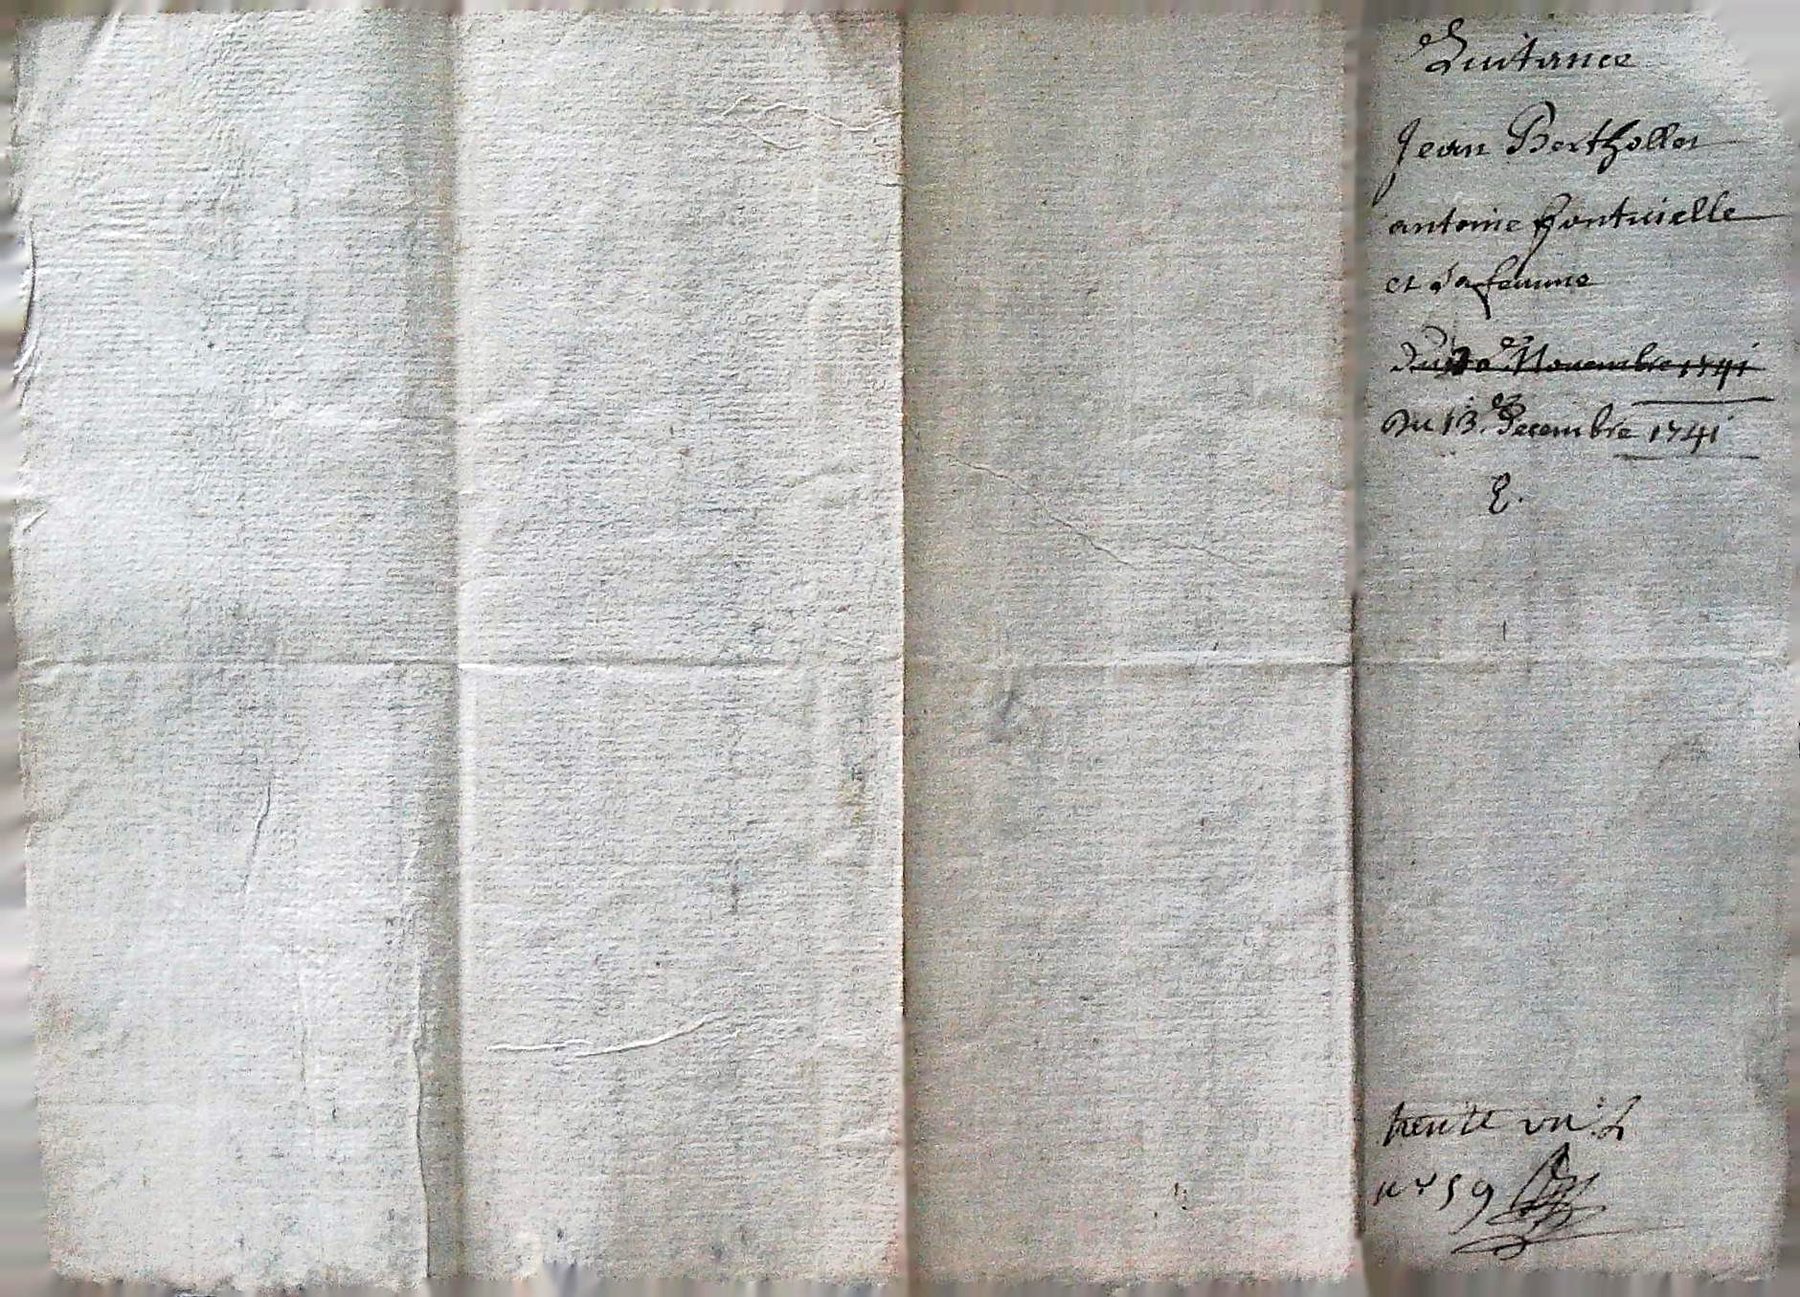 Quitance
Jean Berthollet
antoine fontuielle
et sa femme
Du Nouembre 1741
Du 13.e Decembre 1741
E.
trente un
n 59